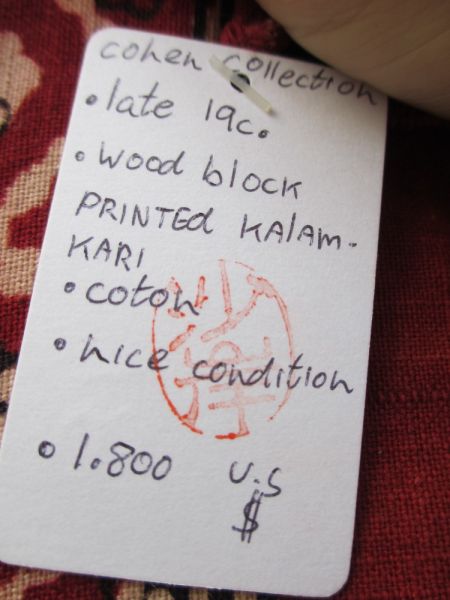 cohen collection
• late 19c.
• wood block
PRINTED KALAM-
KARI
• coton
• nice condition
• 1.800 U.S
$